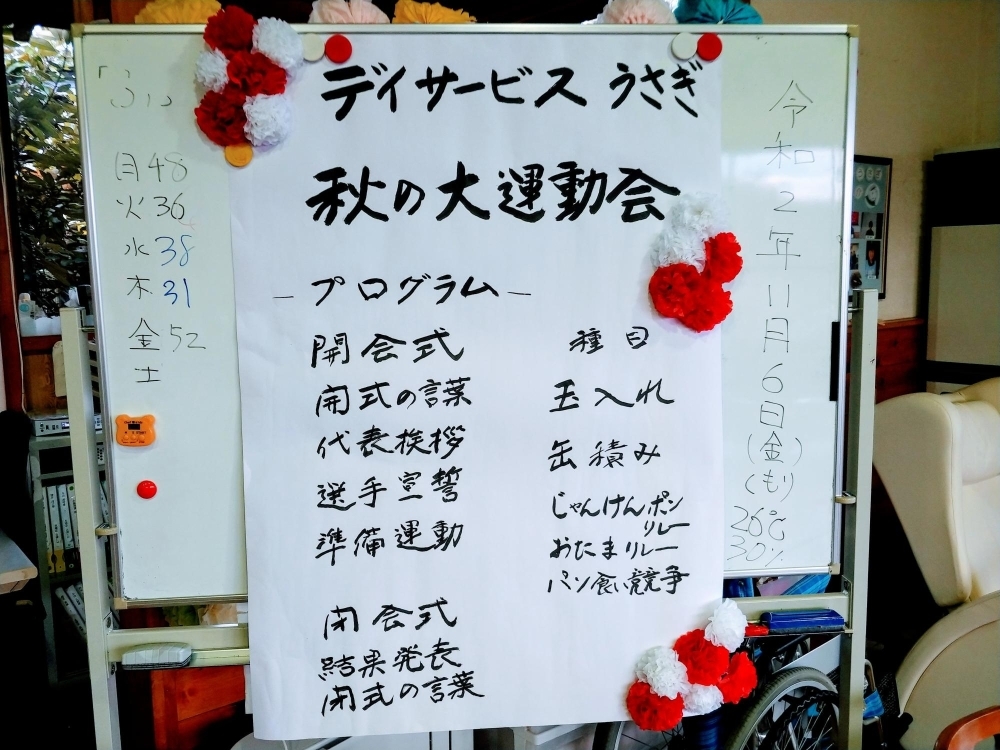 デイサービス うさぎ
秋の大運動会
－プログラム－
開会式
開式の言葉
代表挨拶
選手宣誓
準備運動
閉会式
結果発表
閉式の言葉
種目
玉入れ
缶積み
じゃんけんポン
リレー
おたまリレー
パン食い競争
月48
火36
水38
木31
金52
土
令和2年11月6日(金)
(くもり)
26℃
30%